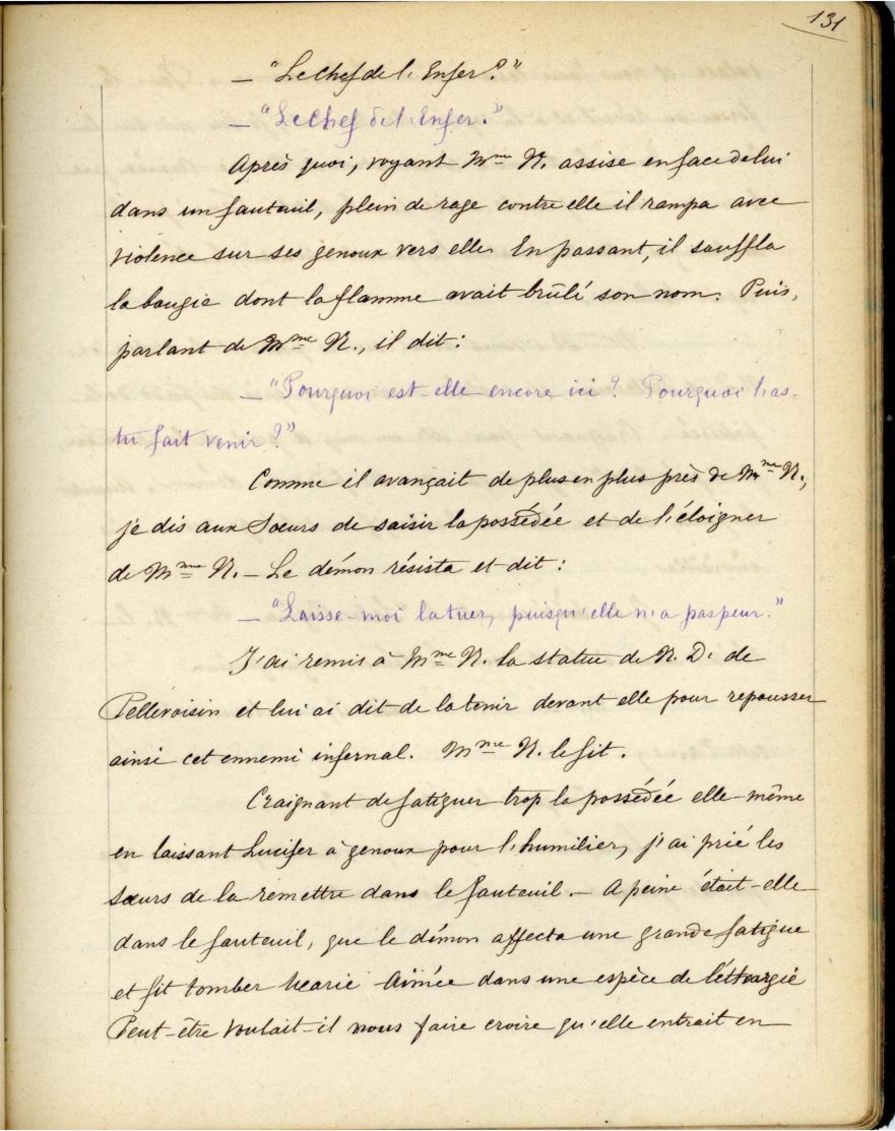 131
— "Le chef de l'Enfer?"
— "Le chef de l'Enfer."
Après quoi, voyant Mme N. assise en face de lui
dans un fauteuil, plein de rage contre elle il rampa avec
violence sur ses genoux vers elle. En passant, il souffla
la bougie dont la flamme avait brûlé son nom. Puis,
parlant de Mme N., il dit:
— "Pourquoi est-elle encore ici? Pourquoi l'as-
tu fait venir?"
Comme il avançait de plus en plus près de Mme N.,
je dis aux Sœurs de saisir la possédée et de l'éloigner
de Mme N. — Le démon résista et dit:
— "Laisse-moi la tuer, puisqu'elle n'a pas peur."
J'ai remis à Mme N. la statue de N. D. de
Pellevoisin et lui ai dit de la tenir devant elle pour repousser
ainsi cet ennemi infernal. Mme N. le fit.
Craignant de fatiguer trop la possédée elle-même
en laissant Lucifer à genoux pour l'humilier, j'ai prié les
Sœurs de la remettre dans le fauteuil. — A peine était-elle
dans le fauteuil, que le démon affecta une grande fatigue
et fit tomber Marie Aimée dans une espèce de léthargie
Peut-être voulait-il nous faire croire qu'elle entrait en